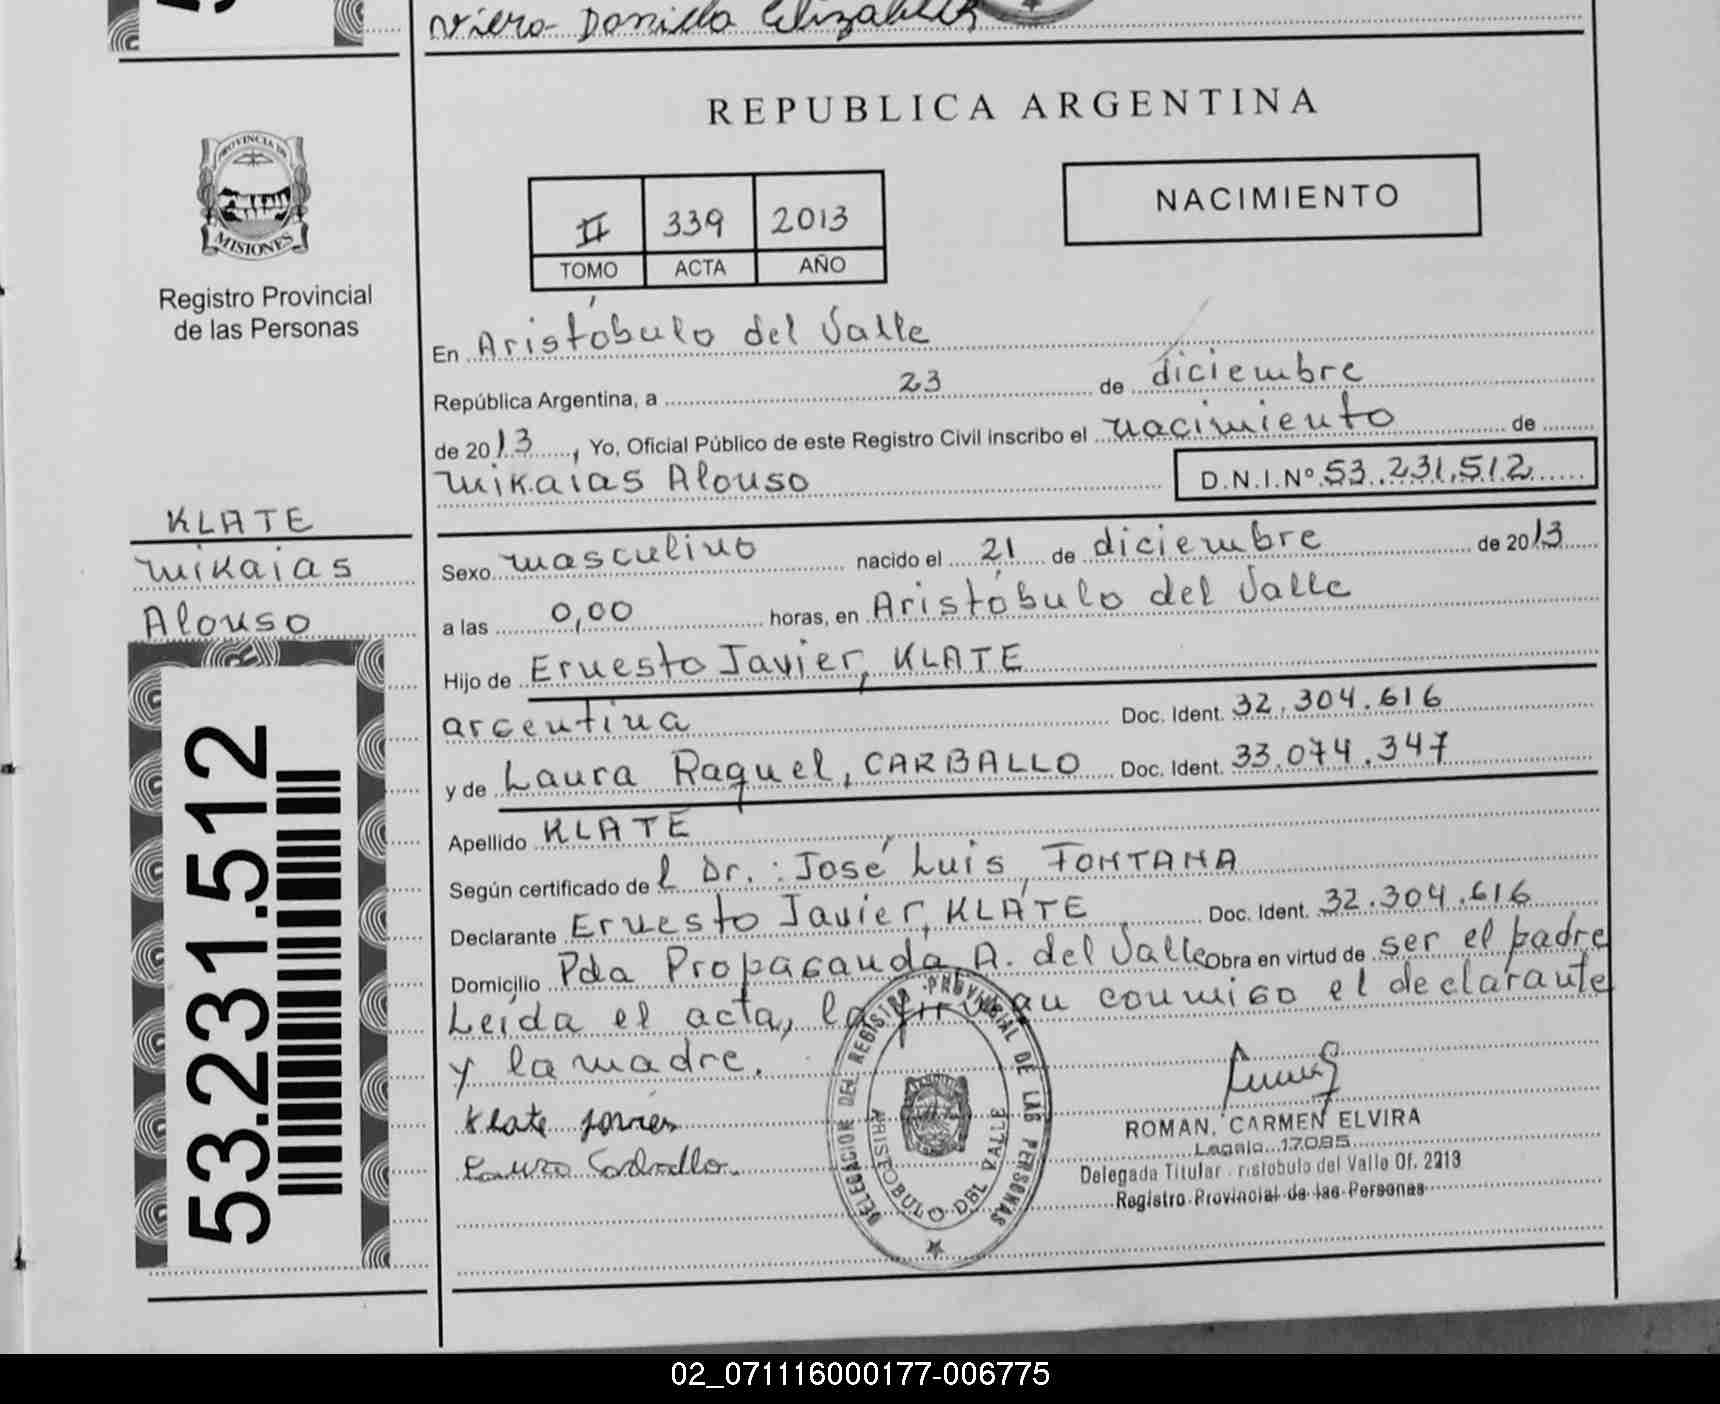 Viera Danilla Elizabeth
REPUBLICA ARGENTINA
PROVINCIA DE
MISIONES
Registro Provincial
de las Personas
II 339 2013
TOMO ACTA AÑO
NACIMIENTO
En Aristóbulo del Valle
República Argentina, a 23 de diciembre
de 2013, Yo, Oficial Público de este Registro Civil inscribo el nacimiento de
Mikaias Alonso D.N.I.Nº 53.231.512
KLATE
Mikaias
Alonso
53.231.512
Sexo masculino nacido el 21 de diciembre de 2013
a las 0,00 horas, en Aristóbulo del Valle
Hijo de Ernesto Javier, KLATE
argentina Doc. Ident. 32.304.616
y de Laura Raquel, CARBALLO Doc. Ident. 33.074.347
Apellido KLATE
Según certificado de l Dr.: José Luis, FONTANA
Declarante Ernesto Javier, KLATE Doc. Ident. 32.304.616
Domicilio Pda Propaganda, A. del Valle Obra en virtud de ser el padre
Leída el acta, la firman conmigo el declarante
y la madre.
Klate Javier
Laura Carballo
DELEGACION DEL REGISTRO PROVINCIAL DE LAS PERSONAS
ARISTOBULO DEL VALLE
ROMAN, CARMEN ELVIRA
Legajo 17085
Delegada Titular ristobulo del Valle Of. 2213
Registro Provincial de las Personas
02_071116000177-006775